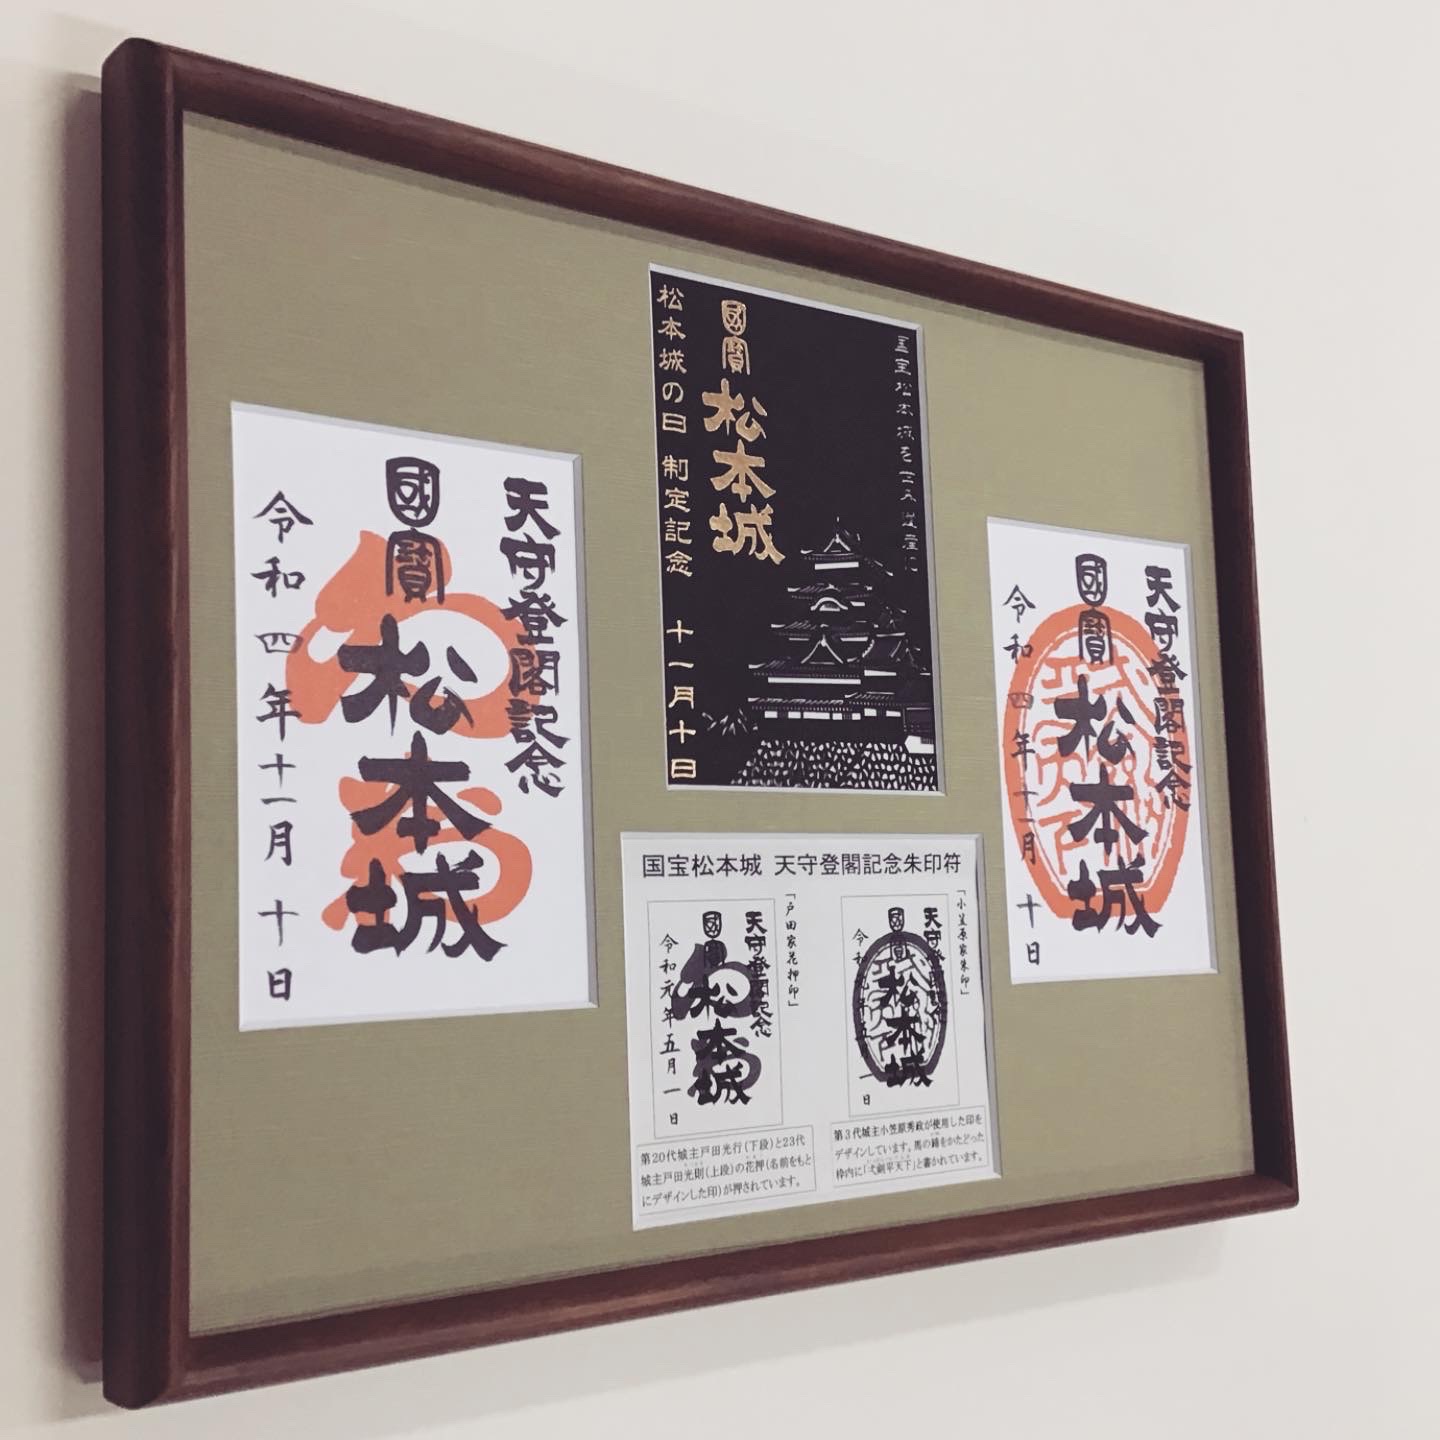 天守登閣記念
國寳
松本城
令和四年十一月十日
国宝松本城を世界遺産に
國寳
松本城
松本城の日 制定記念 十一月十日
天守登閣記念
國寳
松本城
令和四年十一月十日
国宝松本城 天守登閣記念朱印符
「戸田家花押印」
天守登閣記念
國寳
松本城
令和元年五月一日
第20代城主戸田光行(下段)と23代
城主戸田光則(上段)の花押(名前をもと
にデザインした印)が押されています。
「小笠原家朱印」
天守登閣記念
國寳
松本城
令和元年五月一日
第3代城主小笠原秀政が使用した印を
デザインしています。馬の蹄をかたどった
枠内に「弌剣平天下」と書かれています。